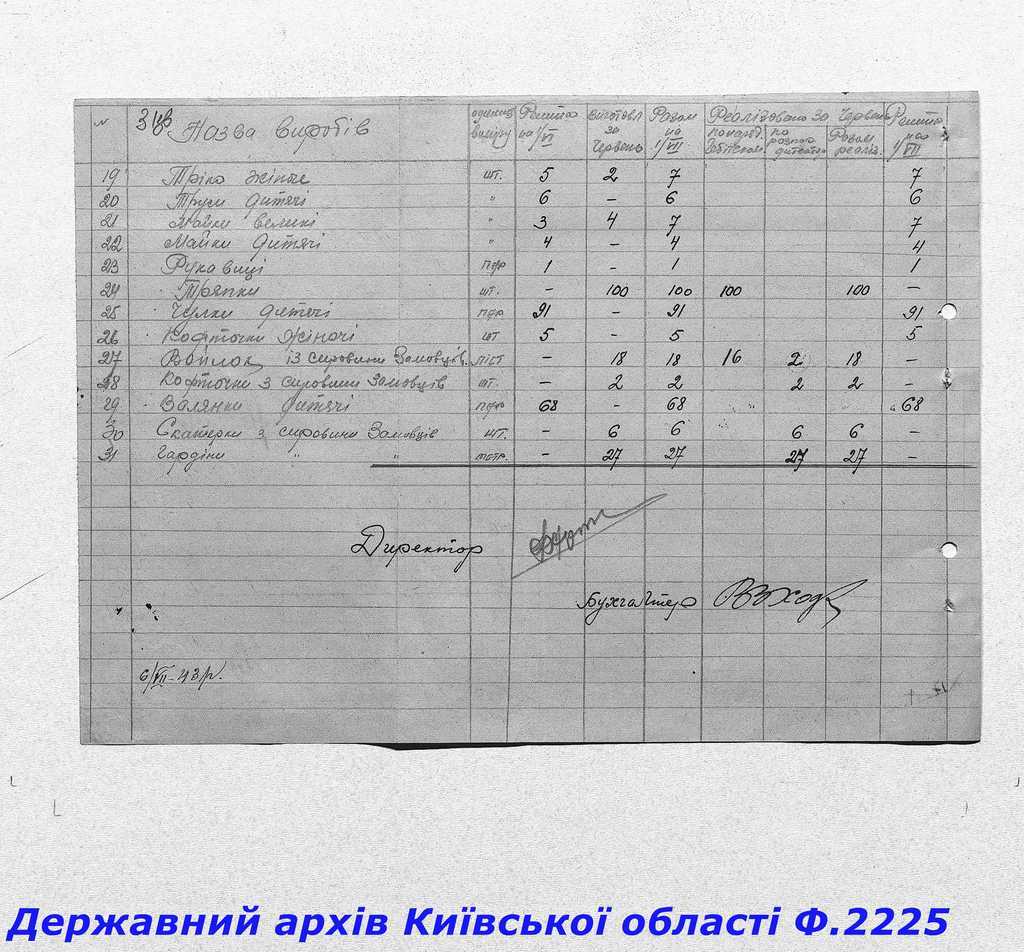 N Назва виробів одиниц виміру Решта на 1/VI виготовл за Червень Разом на 1/VII Реалізовано за Червень Решта на 1/VII
по розпор Разом реаліз.
19 Тріко жіноче шт. 5 2 7 7
20 Труси дитячі " 6 – 6 6
21 Майки великі " 3 4 7 7
22 Майки дитячі " 4 – 4 4
23 Рукавиці пар 1 – 1 1
24 Тряпки шт. – 100 100 100 100 –
25 Чулки дитячі пар 91 – 91 91
26 Кофточки жіночі шт 5 – 5 5
27 Войлок із сировини Замовців. лист – 18 18 16 2 18 –
28 Кофточки з сировини Замовців шт. – 2 2 2 2 –
29 Валянки дитячі пар 68 – 68 68
30 Скатерки з сировини Замовців шт. – 6 6 6 6 –
31 Гардіни " " метр. – 27 27 27 27 –
Директор
Бухгалтер
6/VII-43р.
Державний архів Київської області Ф.2225